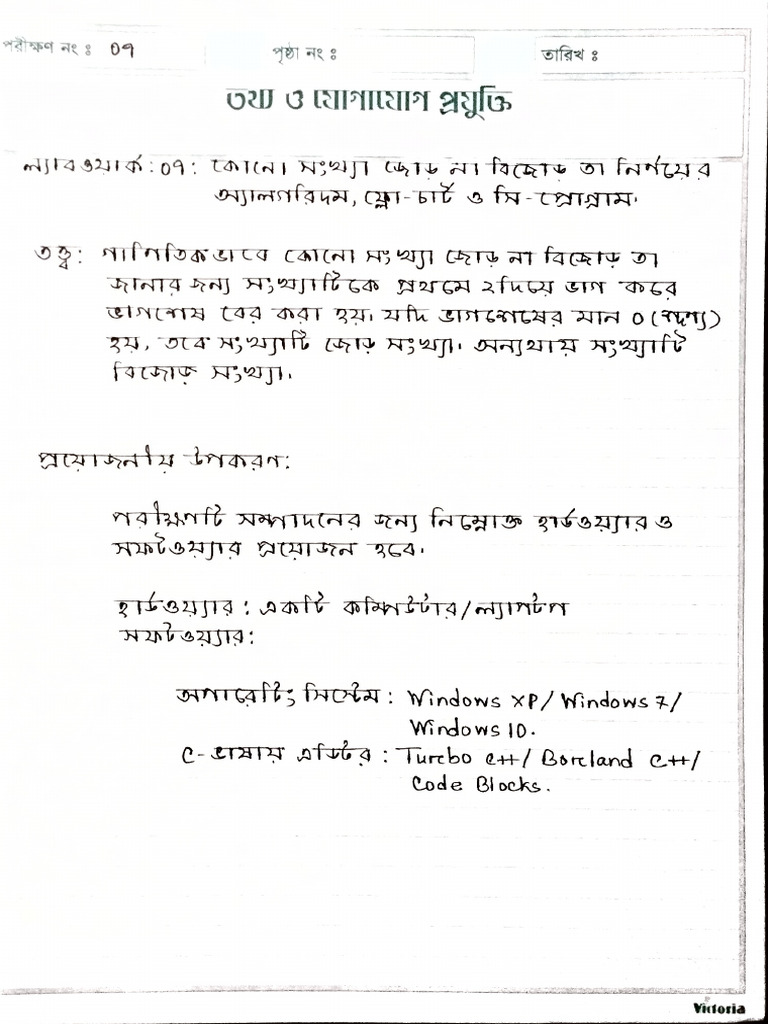 পরীক্ষণ নং : ০৭
পৃষ্ঠা নং :
তারিখ :
তথ্য ও যোগাযোগ প্রযুক্তি
ল্যাবওয়ার্ক : ০৭ : কোনো সংখ্যা জোড় না বিজোড় তা নির্ণয়ের
অ্যালগরিদম, ফ্লো-চার্ট ও সি-প্রোগ্রাম।
তত্ত্ব : গাণিতিকভাবে কোনো সংখ্যা জোড় না বিজোড় তা
জানার জন্য সংখ্যাটিকে প্রথমে ২ দিয়ে ভাগ করে
ভাগশেষ বের করা হয়। যদি ভাগশেষের মান ০ (শূন্য)
হয়, তবে সংখ্যাটি জোড় সংখ্যা। অন্যথায় সংখ্যাটি
বিজোড় সংখ্যা।
প্রয়োজনীয় উপকরণ :
পরীক্ষণটি সম্পাদনের জন্য নিম্নোক্ত হার্ডওয়্যার ও
সফটওয়্যার প্রয়োজন হবে।
হার্ডওয়্যার : একটি কম্পিউটার/ল্যাপটপ
সফটওয়্যার :
অপারেটিং সিস্টেম : Windows XP/ Windows 7/
Windows 10.
C-ভাষায় এডিটর : Turbo C++/ Borland C++/
Code Blocks.
Victoria